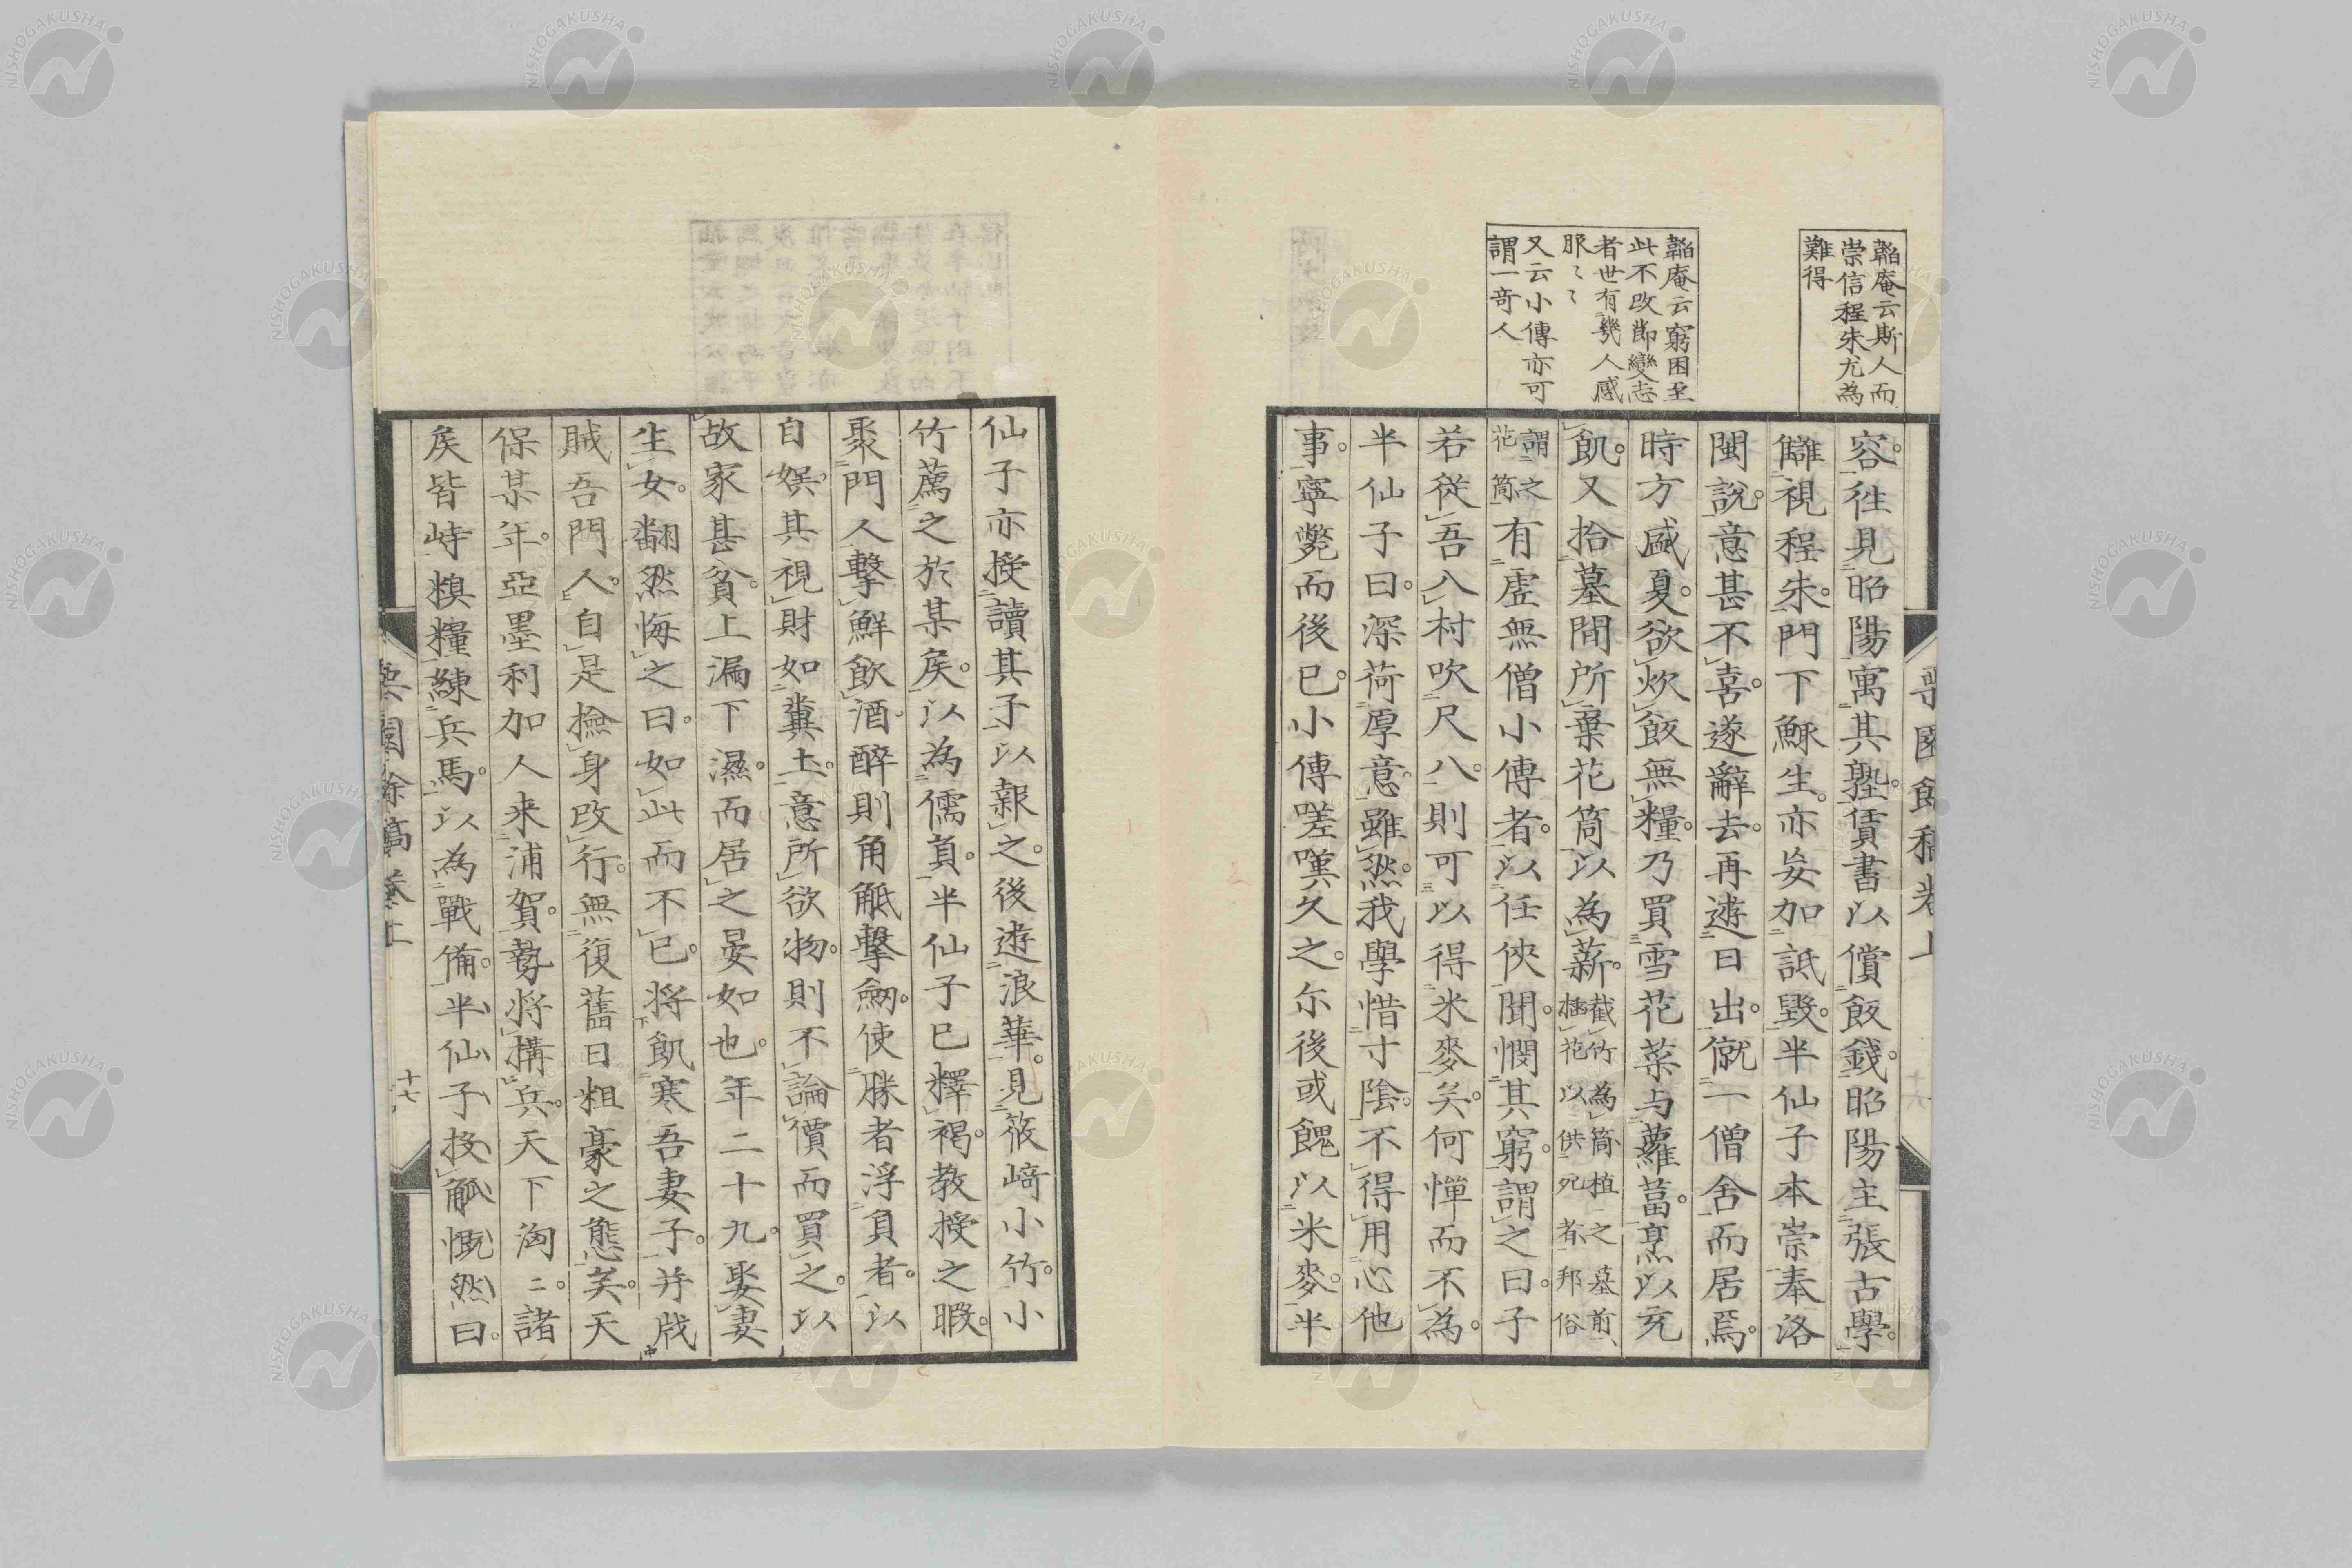 韜庵云斯人而
崇信程朱尤為
難得
韜庵云窮困至
此不改節變志
者世有幾人感
服〻〻
又云小傳亦可
謂一奇人
容。徃見昭陽寓其塾。賃書以償飯錢。昭陽主張古學。
讎視程朱。門下穌生。亦妄加詆毀。半仙子本崇奉洛
閩説。意甚不喜。遂辭去。再遊日出。僦一僧舍而居焉。
時方盛夏。欲炊飯無糧。乃買雪花菜与蘿葍。烹以充
飢。又拾墓間所棄花筒以為薪。截竹為筒植之墓前、
挿花以供死者、邦俗
謂之
花筒
有虛無僧小傳者。以任俠聞。憫其窮。謂之曰。子
若從吾入村吹尺八。則可以得米麥矣。何憚而不為。
半仙子曰。深荷厚意。雖然。我學惜寸陰。不得用心他
事。寧斃而後已。小傳嗟嘆久之。尓後或餽以米麥。半
仙子亦授讀其子以報之。後遊浪華。見筱﨑小竹。小
竹薦之於某矦。以為儒員。半仙子已釋褐。教授之暇。
聚門人擊鮮飲酒。醉則角觝擊劒。使勝者浮負者。以
自娯。其視財如糞土。意所欲物。則不論價而買之。以
故家甚貧。上漏下濕。而居之晏如也。年二十九。娶妻
生女。翻然悔之曰。如此而不已。將飢寒吾妻子。并戕
賊吾門人。自是撿身改行。無復舊日粗豪之態矣。天
保某年。亞墨利加人来浦賀。勢將搆兵。天下洶〻。諸
矦皆峙糗糧練兵馬。以為戰備。半仙子投觚慨然曰。
十七